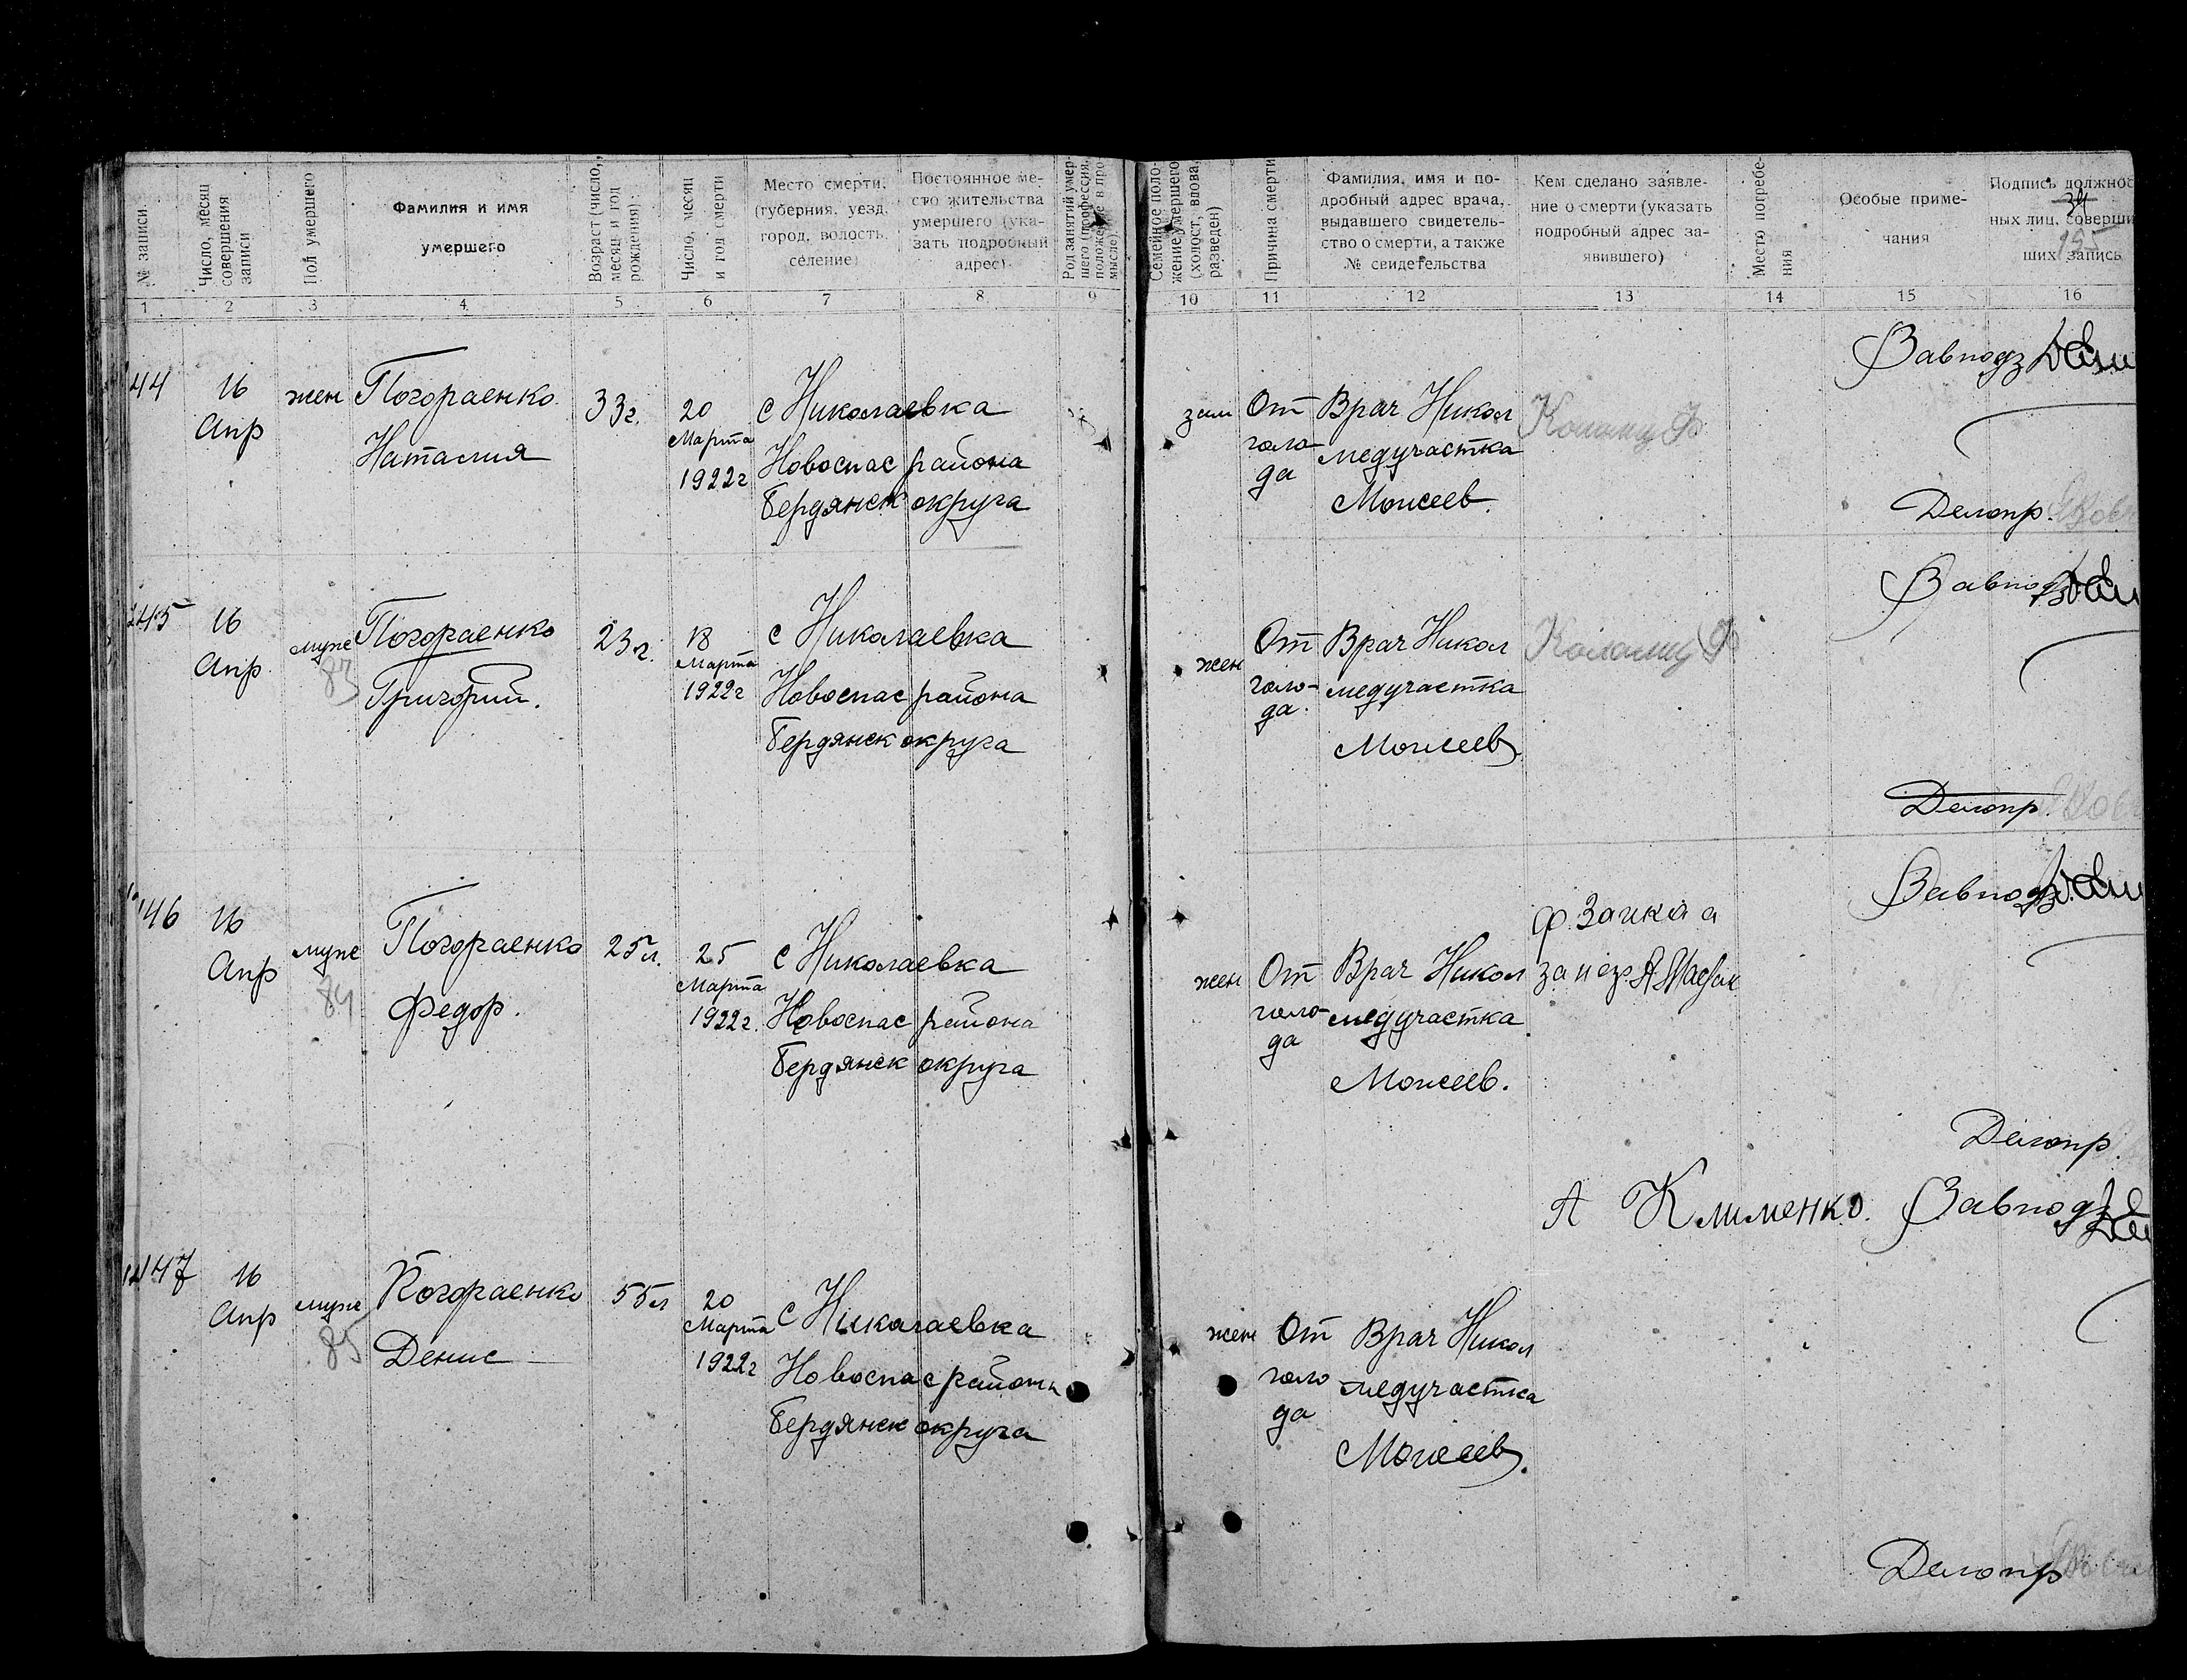 № записи
Число, месяц совершения записи
Пол умершего
Фамилия и имя
умершего
Возраст (число, месяц и год рождения)
Число, месяц и год смерти
Место смерти,
(губерния, уезд,
город, волость,
селение)
Постоянное ме-
сто жительства
умершего (ука-
зать подробный
адрес)
Род занятий умер-
шего (профессия,
положение в про-
мысле)
Семейное поло-
жение умершего
(холост, вдова,
разведен)
Причина смерти
Фамилия, имя и по-
дробный адрес врача,
выдавшего свидетель-
ство о смерти, а также
№ свидетельства
Кем сделано заявле-
ние о смерти (указать
подробный адрес за-
явившего)
Место погребе-
ния
Особые приме-
чания
Подпись должнос
34
ных лиц, соверши
195
ших запись
1 2 3 4 5 6 7 8 9 10 11 12 13 14 15 16
Завподз
44 16 жен Погораенко 33г. 20 с Николаевка зам От Врач Никол
Апр Наталия Марта Новоспас района голо- медучастка
1922г Бердянск округа да Моисеев.
Делопр.
Завподз
145 16 муж Погораенко 23г. 18 с Николаевка жен От Врач Никол
Апр. 83 Григорий. Марта Новоспас района голо- медучастка
1922г Бердянск округа да. Моисеев.
Делопр.
Завподз
Ф. Заика а
146 16 муж Погораенко 25л. 25 с Николаевка жен От Врач Никол
Апр 84 Федор. Марта Новоспас района голо- медучастка
1922г. Бердянск округа да Моисеев.
Делопр.
А Клименко. Завподз
147 16 муж Погораенко 55л 20 с Николаевка жен От Врач Никол
Апр 85 Денис Марта Новоспас района голо медучастка
1922г Бердянск округа да Моисеев.
Делопр